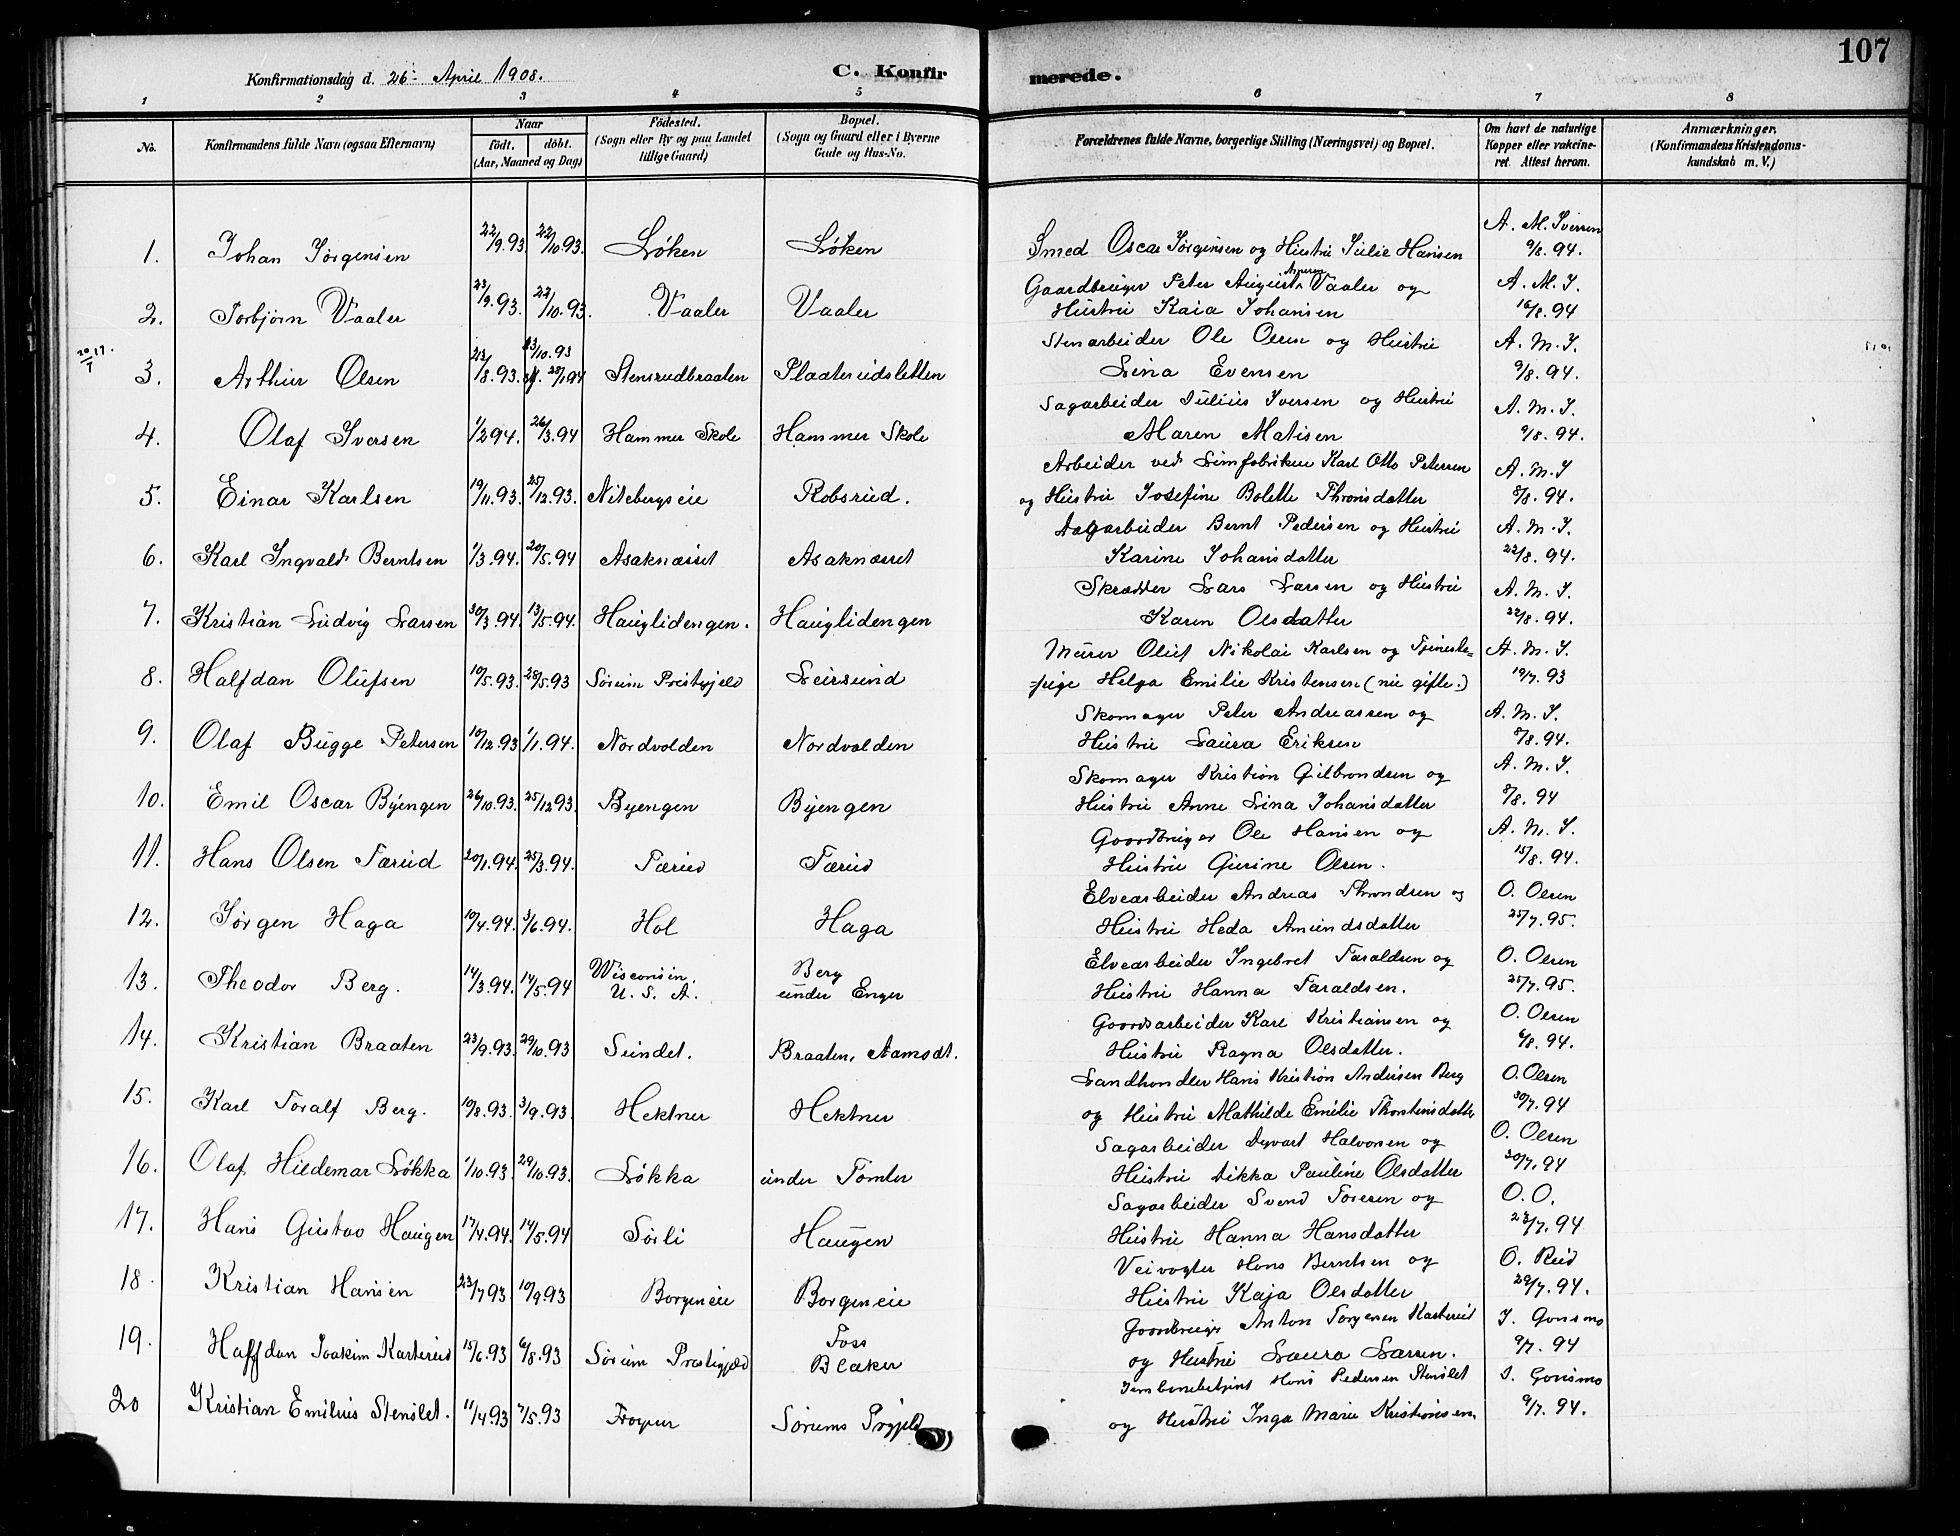 107
Konfirmationsdag d. 26 April 1908.
C. Konfirmerede.
1 2 3 4 5 6 7 8
No.
Konfirmandens fulde Navn (ogsaa Efternavn)
Naar
födt. döbt.
(Aar, Maaned og Dag)
Födested.
(Sogn eller By og paa Landet
tillige Gaard)
Bopæl.
(Sogn og Gaard eller i Byerne
Gade og Hus-No.
Forældrenes fulde Navne, borgerlige Stilling (Næringsvei) og Bopæl.
Om havt de naturlige
Kopper eller vakcine-
ret. Attest herom.
Anmærkninger.
(Konfirmandens Kristendoms-
kundskab m. V.)
1. Johan Jørgensen 22/9.93 22/10.93. Løken Løken Smed Oscar Jørgensen og Hustru Julie Hansen A. M. Iversen
9/8.94.
2. Torbjørn Vaaler 23/9.93. 22/10.93. Vaaler Vaaler Gaardbruger Peter August Vaaler og A. M. I.
Hustru Kaia Johansen 16/8.94
3. Arthur Olsen 23/8.93. 28/1.94 13/10.93 Stensrudbraaten Plaaterudsletten Stenarbeider Ole Olsen og Hustru A. M. I.
Lina Evensen 9/8.94.
4. Olaf Iversen 1/2 94. 26/3.94 Hammer Skole Hammer Skole Sagarbeider Julius Iversen og Hustru A. M. I.
Maren Matisen 9/8.94.
5. Einar Karlsen 19/11.93. 25/12.93. Nitebergseie Robsrud. Arbeider ved Limfabriken Karl Otto Petersen A. M. I
og Hustru Josefine Bolette Thronsdatter 8/8.94.
6. Karl Ingvald Berntsen 1/3.94. 20/5.94 Asaknæsset Asaknæsset Sagarbeider Bernt Pedersen og Hustru A. M. I.
Karine Johansdatter 22/8.94.
7. Kristian Ludvig Larsen 30/3.94. 13/5.94. Hauglidengen. Hauglidengen Skrædder Lars Larsen og Hustru A. M. I.
Karen Olsdatter 22/8.94.
8. Halfdan Olufsen 10/5.93. 28/5.93 Sørum Prestegjeld Leirsund Murer Oluf Nikolai Karlsen og Tjeneste- A. M. I.
pige Helga Emilie Kristensen (nu gifte.) 19/7.93
9. Olaf Bugge Petersen 10/12.93 1/1.94. Nordvolden Nordvolden Skomager Peter Andreassen og A. M. I.
Hustru Laura Eriksen 8/8.94.
10. Emil Oscar Byengen 26/10.93. 25/12 93. Byengen Byengen Skomager Kristian Gilbrandsen og A. M. I.
Hustru Anne Lina Johansdatter 8/8.94
11. Hans Olsen Færud 20/1.94. 25/3.94. Færud Færud Gaardbruger Ole Hansen og A. M. I.
Hustru Gurine Olsen. 15/8.94.
12. Jørgen Haga 10/4.94. 3/6.94. Hol Haga Elvearbeider Andreas Throndsen og O. Olsen
Hustru Heda Amundsdatter 25/7.95.
13. Theodor Berg. 14/3.94. 14/5.94 Wisconsin, Berg Elvearbeider Ingebret Taraldsen og O. Olsen
U. S. A. under Enger Hustru Hanna Taraldsen. 25/7.95.
14. Kristian Braaten 23/9.93. 29/10.93 Sundet. Braaten, Aamodt. Gaardsarbeider Karl Kristiansen og O. Olsen
Hustru Ragna Olsdatter. 6/8.94.
15. Karl Toralf Berg. 10/8.93. 3/9.93. Hektner Hektner Landhandler Hans Kristian Andersen Berg O. Olsen
og Hustru Mathilde Emilie Thorstensdatter 30/7.94
16. Olaf Hildemar Løkka 1/10.93. 29/10.93. Løkka under Tomter Sagarbeider Syvart Halvorsen og O. Olsen
Hustru Rikka Pauline Olsdatter 30/7.94
17. Hans Gustav Haugen 17/4.94. 14/5.94 Sørli Haugen Sagarbeider Svend Toresen og O. O.
Hustru Hanna Hansdatter 23/7.94
18. Kristian Hansen 23/7 93 10/9.93 Borgeneie Borgeneie Veivogter Hans Berntsen og O. Rud
Hustru Kaja Olsdatter 29/7.94.
19. Halfdan Joakim Karterud 15/6.93 6/8.93 Sørum Prestegjeld Foss Gaardbruger Anton Torgersen Karterud J. Gonsmo
Blaker og Hustru Laura Larsen. 9/7.94
20 Kristian Emilius Stenslet. 11/4 93 7/5.93 Frogner Sørums Prgjeld Jernbanebetjent Hans Pedersen Stenslet J. Gonsmo
og Hustru Inga Marie Kristiansen. 9/7.94.